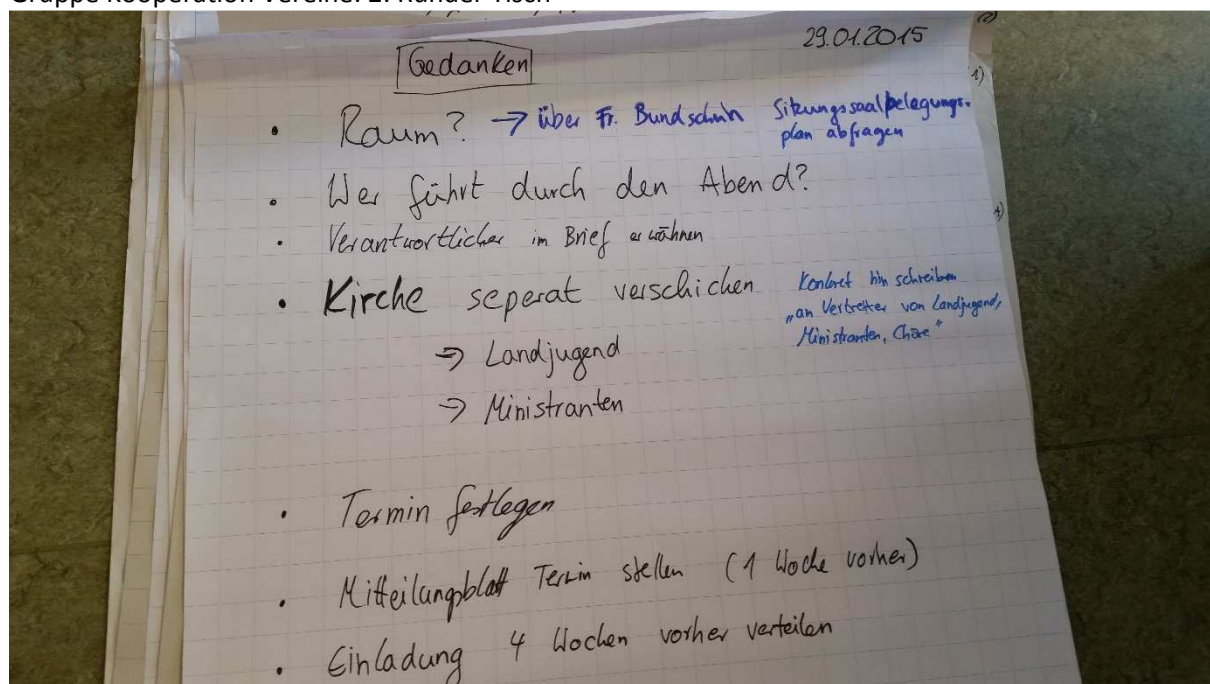 Gruppe Kooperation Vereine: 2. Runder Tisch
29.01.2015
Gedanken
• Raum? → über Fr. Bundschuh Sitzungssaalbelegungs-
plan abfragen
• Wer führt durch den Abend?
• Verantwortlicher im Brief erwähnen
• Kirche seperat verschicken
Konkret hin schreiben
„an Vertreter von Landjugend,
Ministranten, Chöre"
→ Landjugend
→ Ministranten
• Termin festlegen
• Mitteilungsblatt Termin stellen (1 Woche vorher)
• Einladung 4 Wochen vorher verteilen